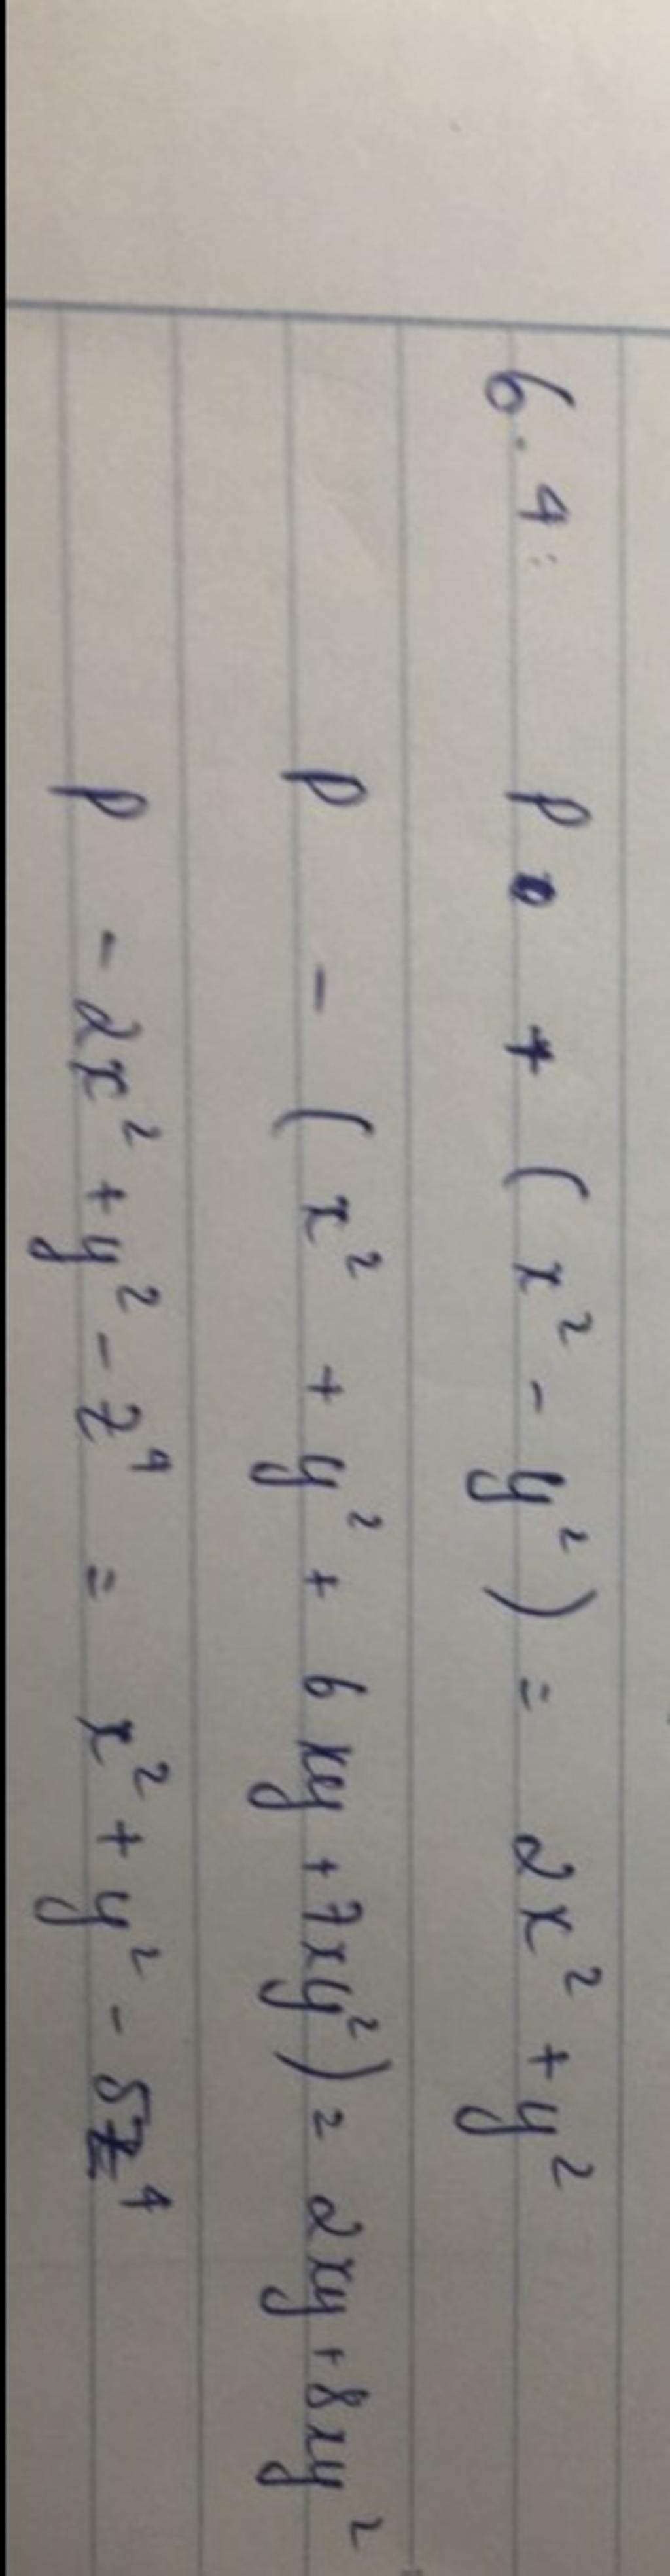 6.4: P + (x² - y²) = 2x² + y²
P - (x² + y² + 6xy + 7xy²) = 2xy + 8xy²
P - 2x² + y² - z⁴ = x² + y² - 5z⁴